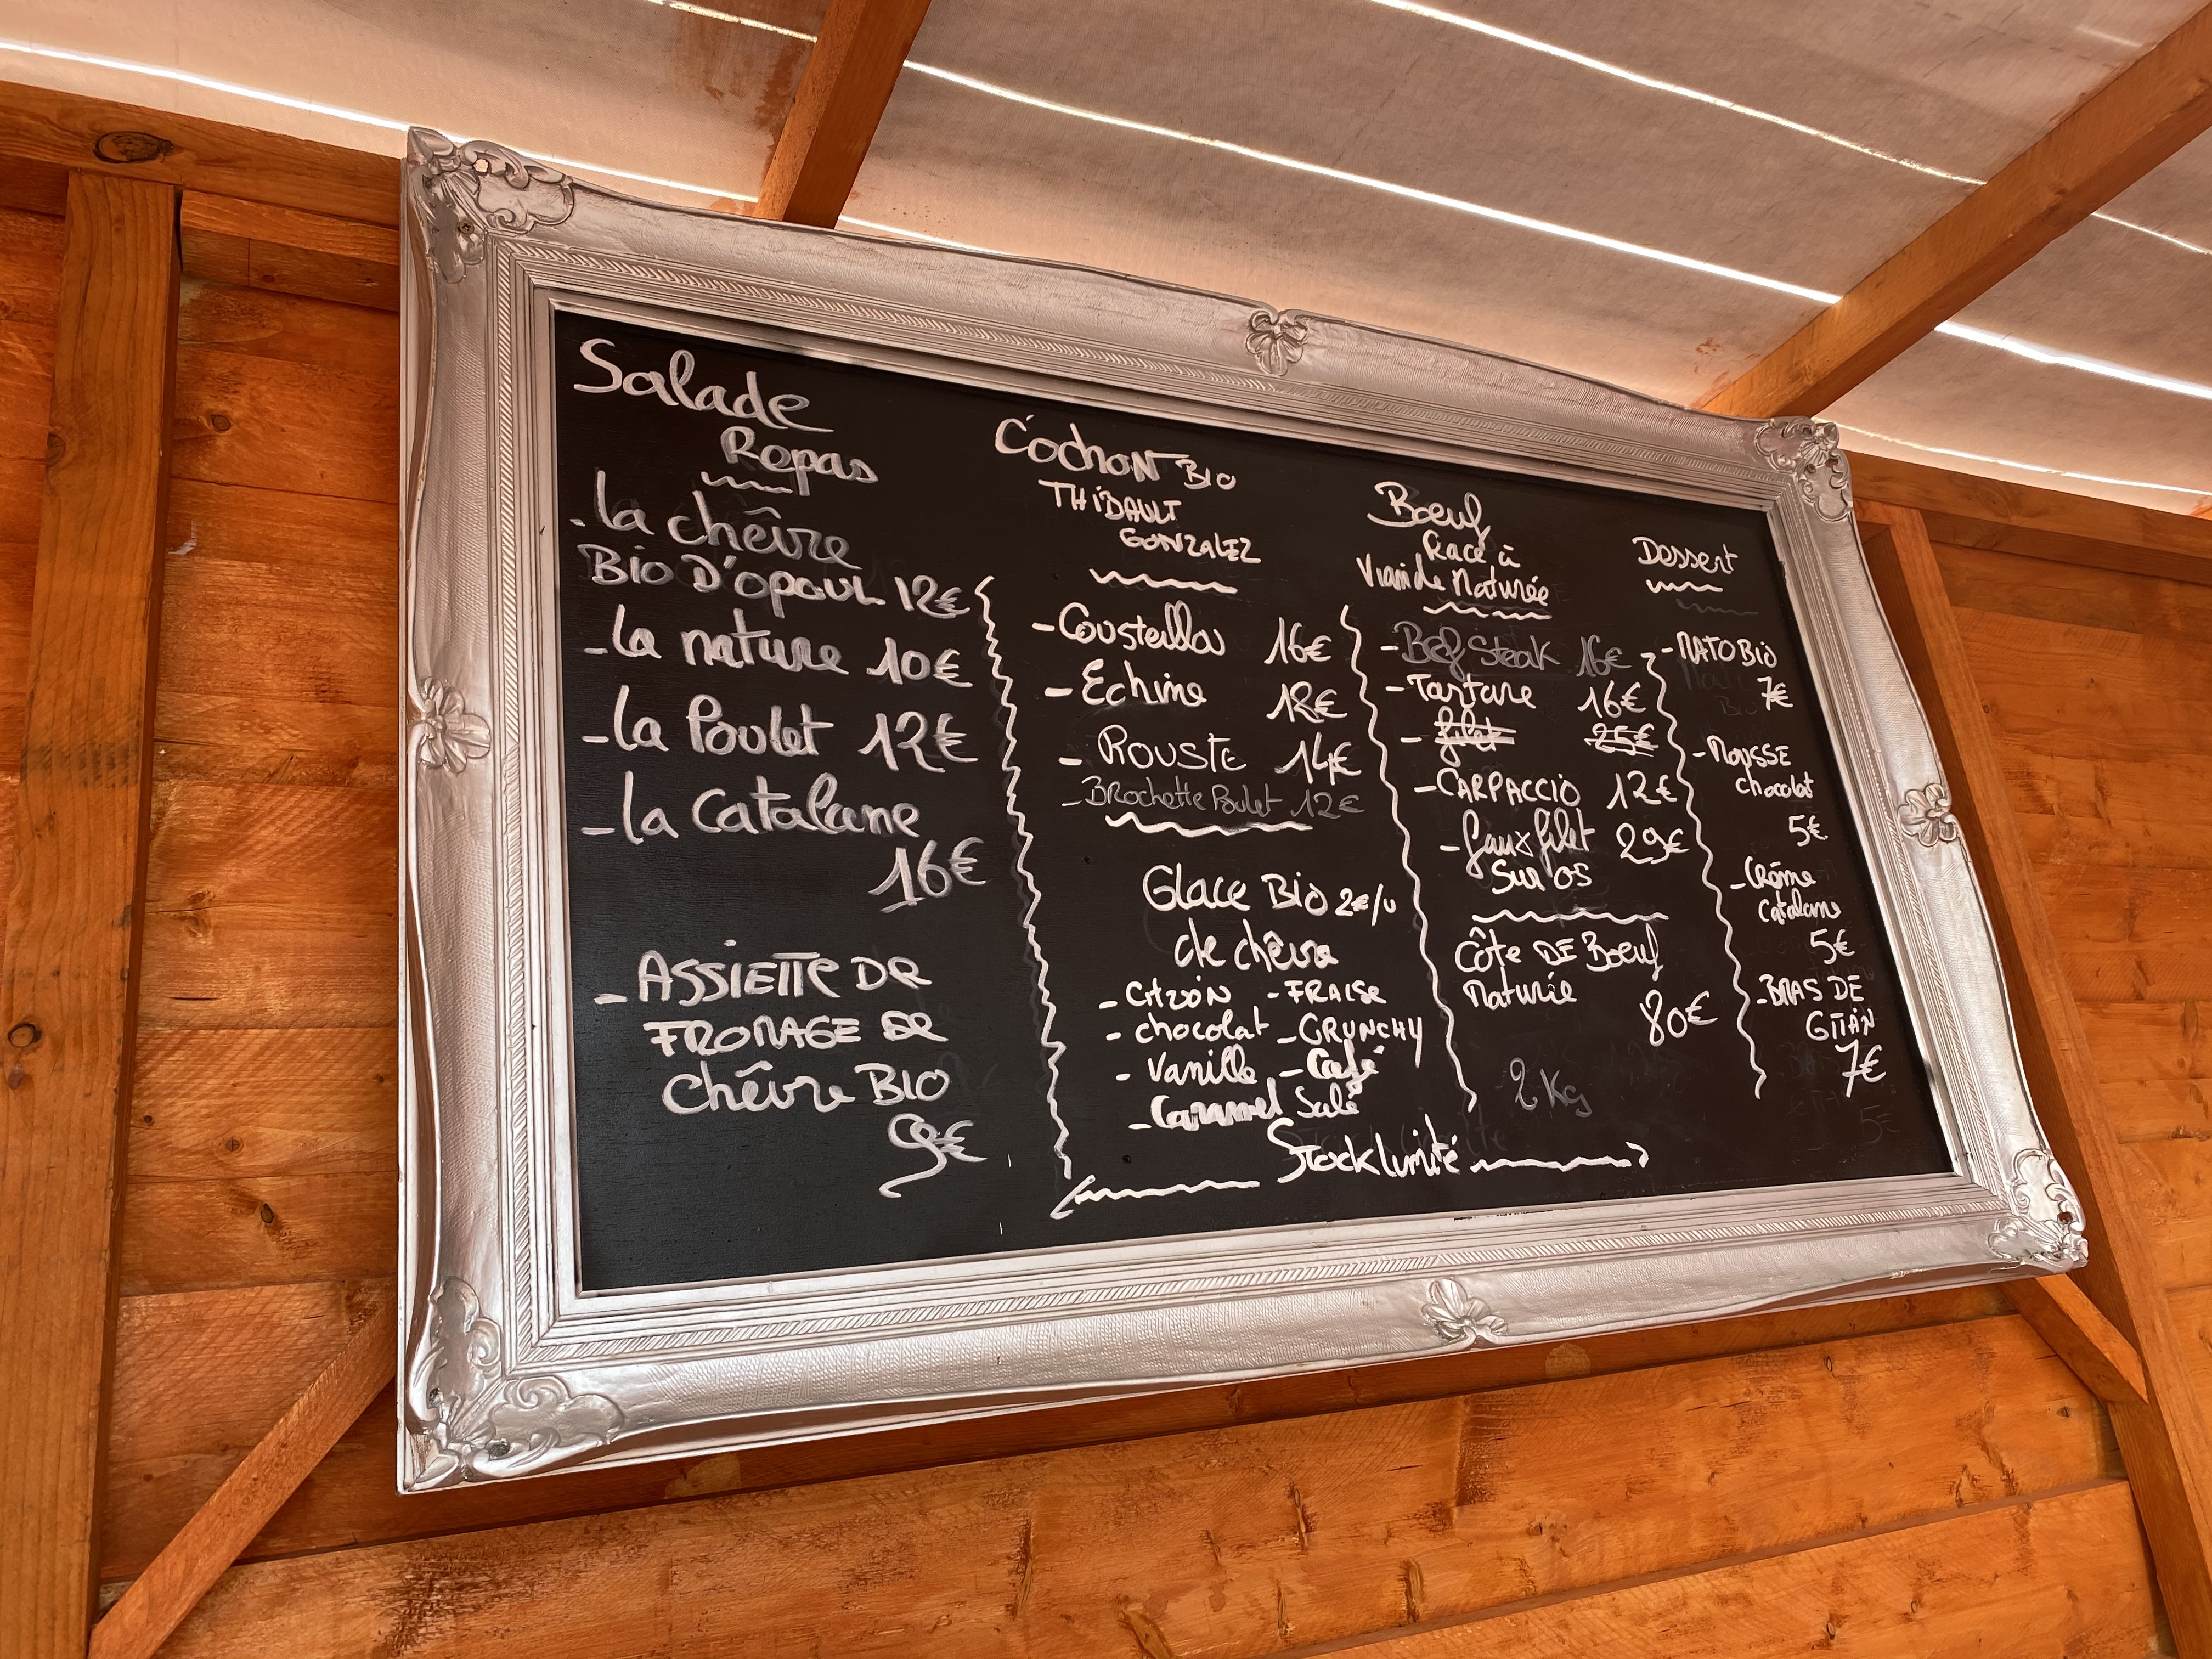 Salade
Repas
- la chêvre
Bio D'opaul 12€
- la nature 10€
- la Poulet 12€
- la Catalane
16€
- ASSIETTE DE
FROMAGE DE
Chêvre BIO
9€
Cochon BIO
THIBAULT
GONZALEZ
- Coustellou 16€
- Echine 12€
- ROUSTE 14€
- BRochette Poulet 12€
Glace Bio 2€/u
de chêvre
- Citron - FRAISE
- chocolat - CRUNCHY
- Vanille - Café
- Caramel Salé
Stock limité
Boeuf
Race à
Viande Maturée
- Bef Steak 16€
- Tartare 16€
- filet 25€
- CARPACCIO 12€
- faux filet 29€
Sur os
Côte DE Boeuf
Maturée
80€
2 Kg
Dessert
- MATO BIO
7€
- MOUSSE
chocolat
5€
- Crême
Catalane
5€
- BRAS DE
GITAN
7€
5€